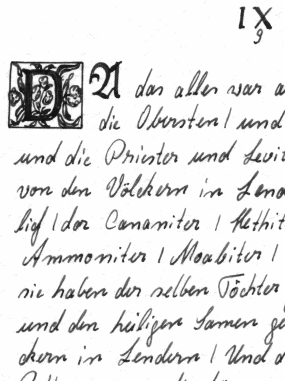 IX
9
DA das alles war a
die Obersten / und
und die Priester und Levit
von den Völckern in Lend
lich / der Cananiter / Hethit
Ammoniter / Moabiter /
sie haben der selben Töchter
und den heiligen Samen ge
ckern in Lendern / Und d